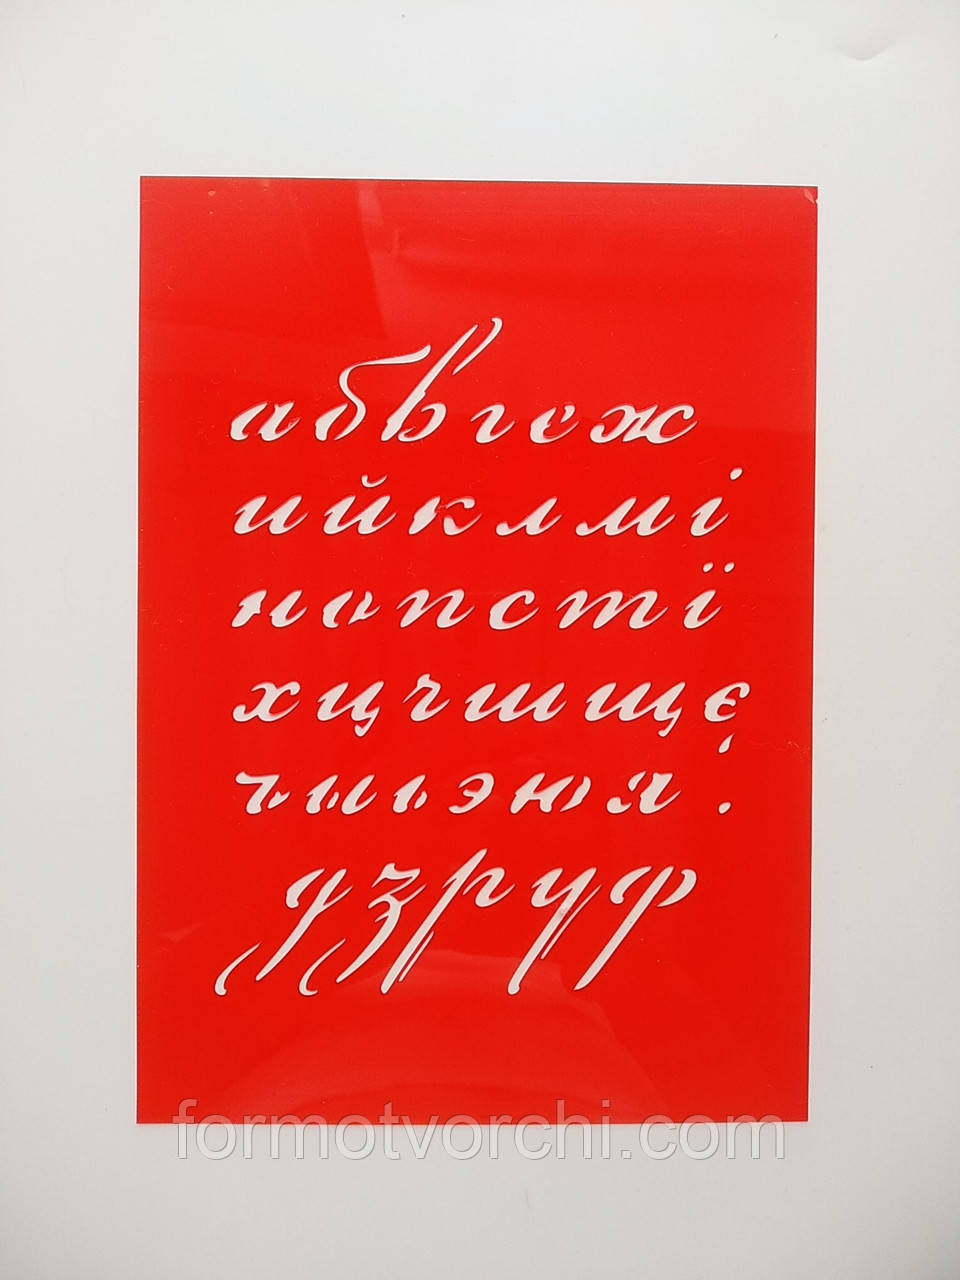 абвгеж
ийклмі
нопстї
хцчшщє
ъыьэюя.
дзруф
formotvorchi.com